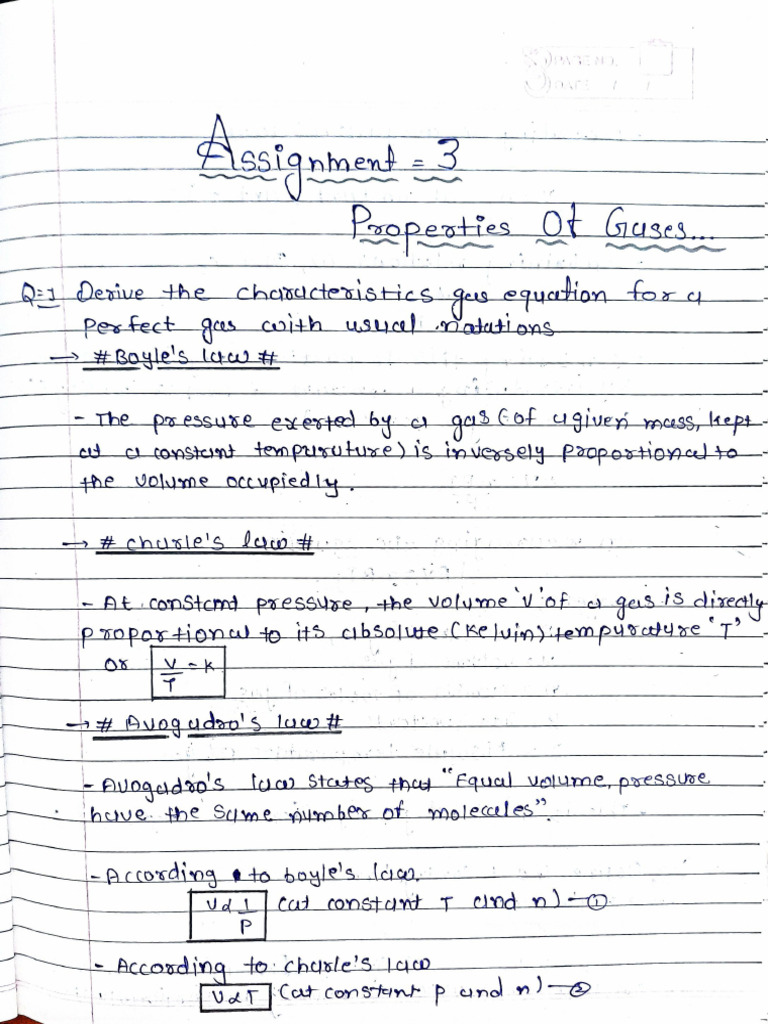 Assignment = 3
Properties Of Gases...
Q=1 Derive the characteristics gas equation for a
perfect gas with usual notations
→ # Boyle's law #
- The pressure exerted by a gas (of a given mass, kept
at a constant tempurature) is inversely proportional to
the volume occupiedly.
→ # Charle's law #
- At constant pressure, the volume 'V' of a gas is directly
proportional to its absolute (Kelvin) tempurature 'T'
or V/T = K
→ # Avogadro's law #
- Avogadro's law states that "Equal volume, pressure
have the same number of molecules".
- According to boyle's law.
V α 1/P (at constant T and n) - ①
- According to charle's law
V α T (at constant p and n) - ②